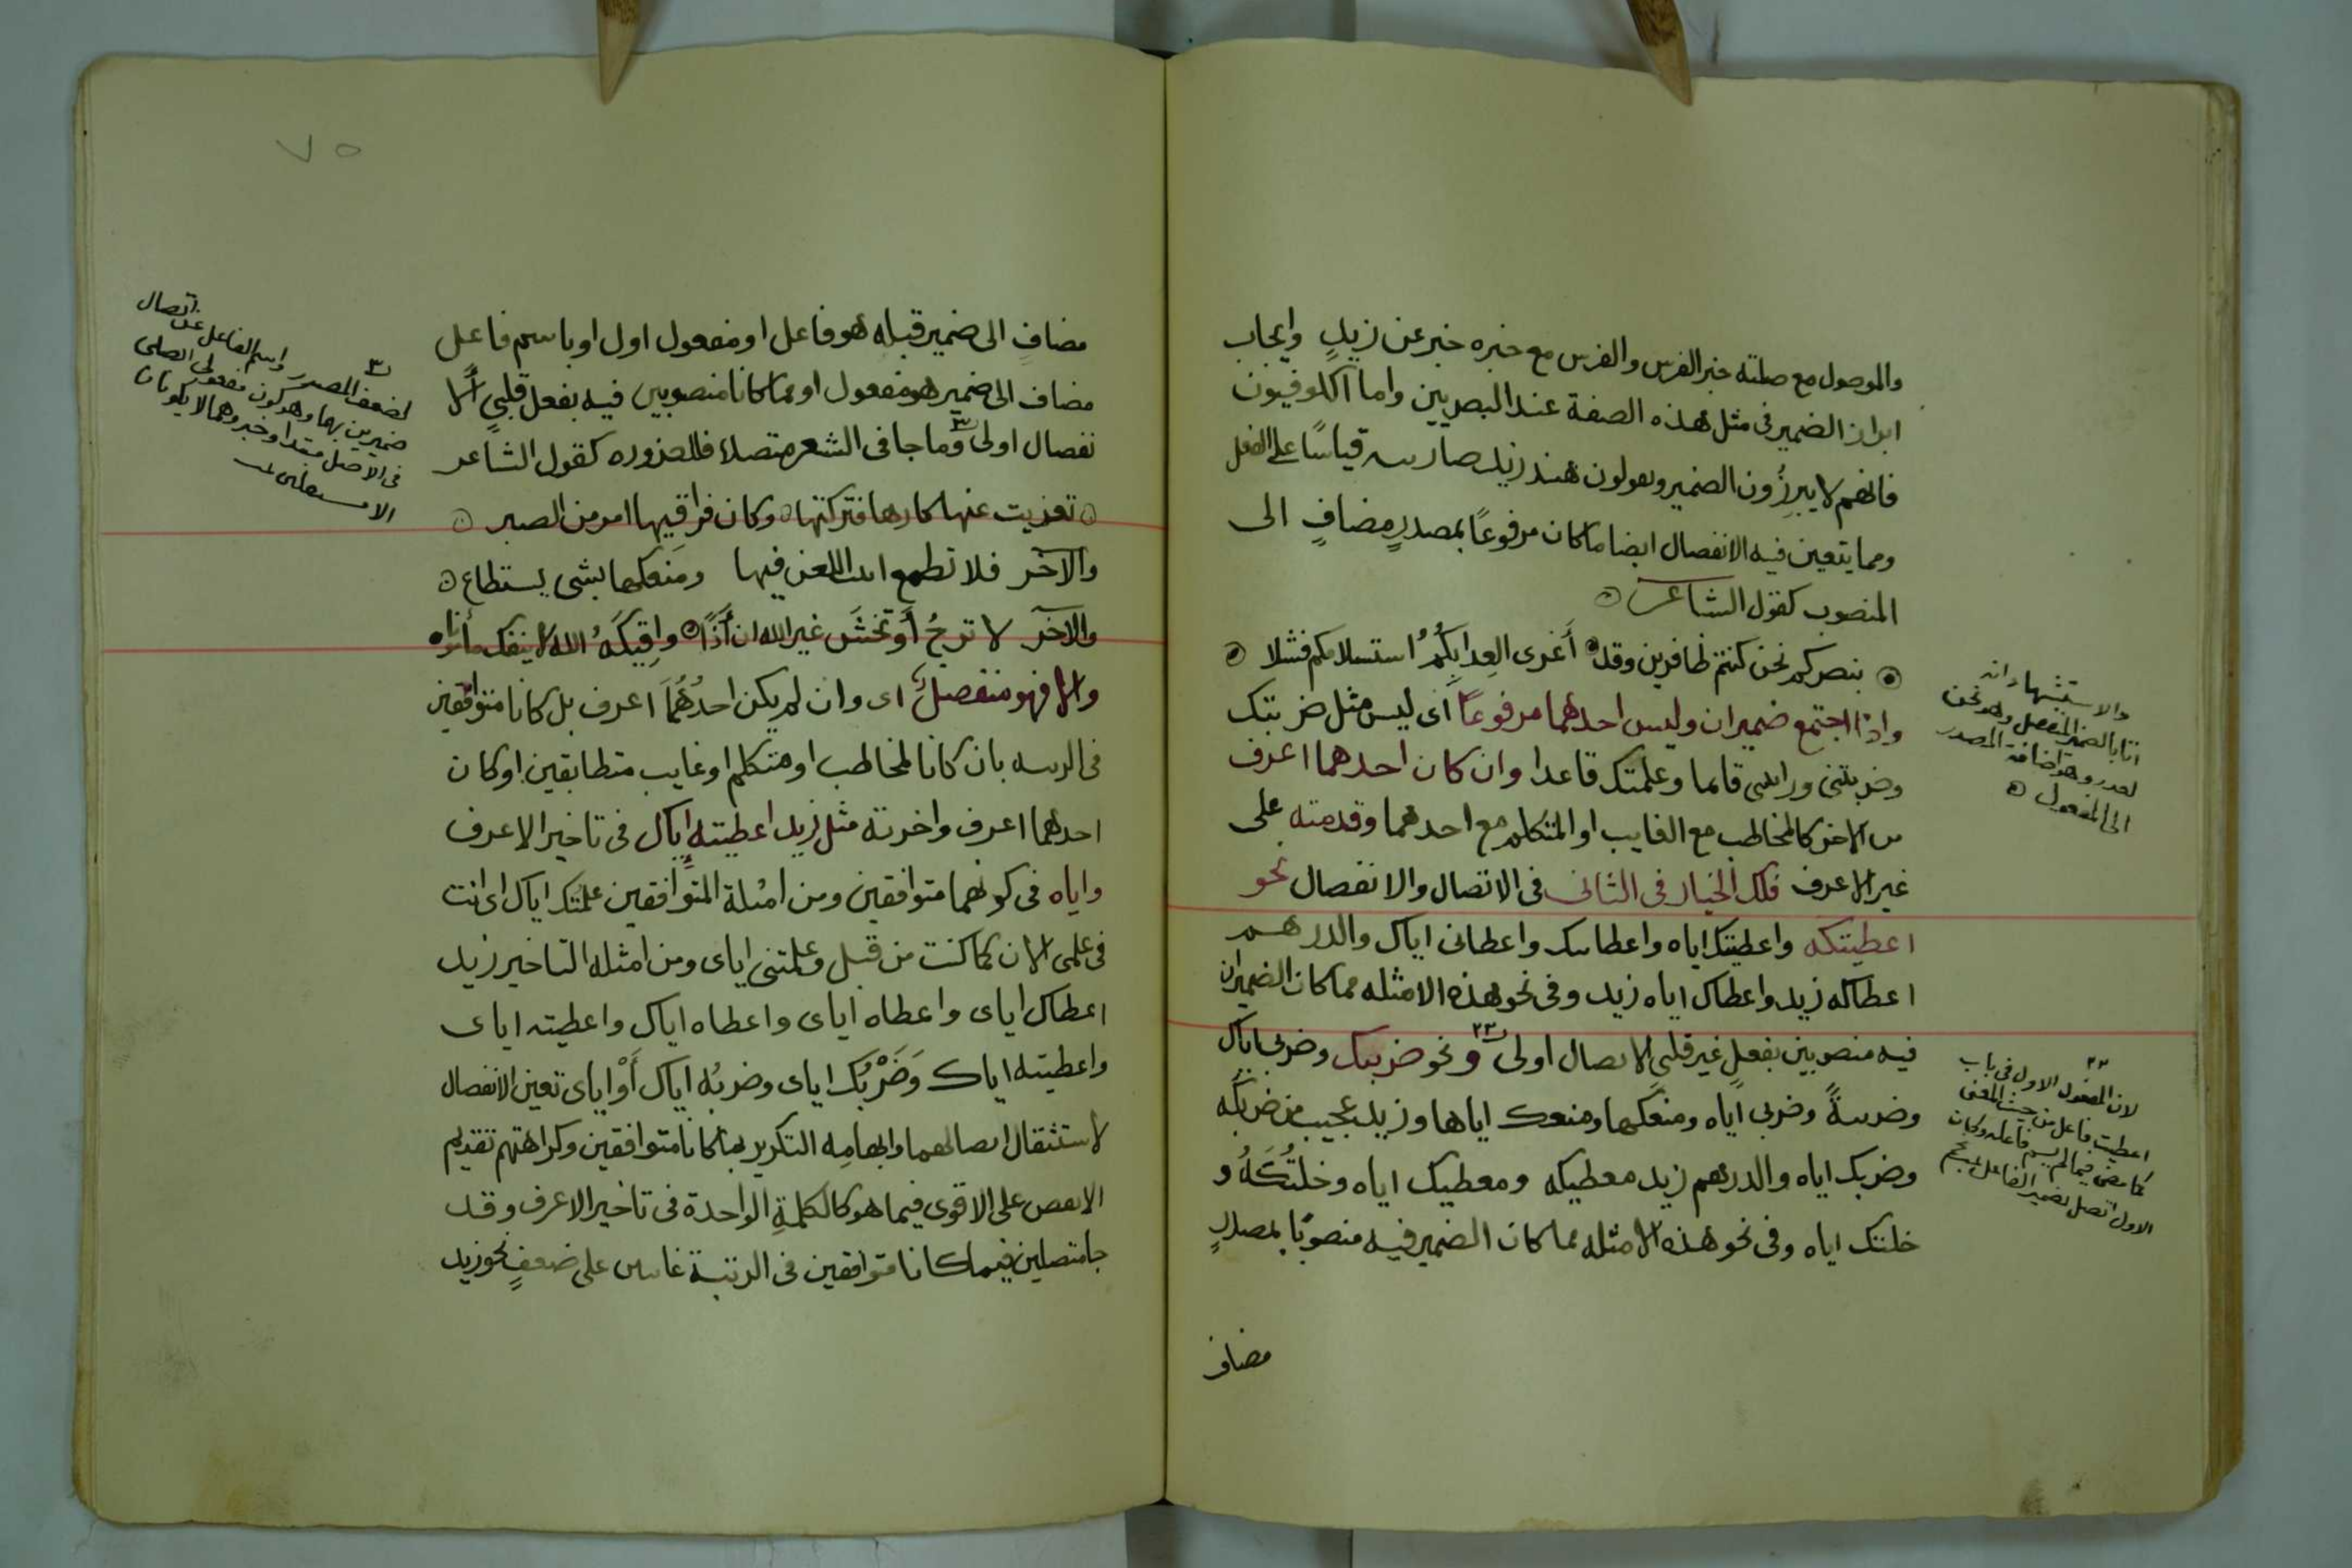 والموصول مع صلته خبر الفرس والفرس مع خبره خبر عن زيدٍ وايجاب
ابراز الضمير فى مثل هذه الصفة عند البصريين واما الكوفيون
فانهم لا يبرزُون الضمير ويقولون هند زيد ضاربته قياسًا على الفعل
ومما يتعين فيه الانفصال ايضا ما كان مرفوعًا بمصدرٍ مضافٍ الى
المنصوب كقول الشاعر
بنصركم نحن كنتم ظافرين وقد أَغرى العِدا بِكُمُ استسلامكم فشلا
واذا اجتمع ضميران وليس احدهما مرفوعًا اى ليس مثل ضربتك
وضربتنى ورايتنى قائما وعلمتك قاعدا وان كان احدهما اعرف
من الاخر كالمخاطب مع الغايب او المتكلم مع احدهما وقدمته على
غير الاعرف فلك الخيار فى الثانى فى الاتصال والانفصال نحو
اعطيتكه واعطيتك اياه واعطانيك واعطانى اياك والدرهم
اعطاكه زيد واعطاك اياه زيد وفى نحو هذه الامثله مما كان الضميران
فيه منصوبين بفعلٍ غير قلبىٍ الاتصال اولى ونحو ضربيك وضربى اياك
وضربيهً وضربى اياه ومنعكها ومنعك اياها وزيد عجيب من ضربكه
وضربك اياه والدرهم زيد معطيكه ومعطيك اياه وخلتُكَهُ و
خلتك اياه وفى نحو هذه الامثله مما كان الضمير فيه منصوبًا بمصدرٍ
مضاف
والاستشهاد انه
اتا بالضمير المنفصل وهو نحن
لعذر وهو اضافة المصدر
الى المفعول
لان المفعول الاول فى باب
اعطيت فاعل من حيث المعنى
كما مضى فيما لم يسم فاعله وكان
الاول اتصل بضمير الفاعل
٧٥
مضافٍ الى ضمير قبله هو فاعل او مفعول اول او باسم فاعل
مضاف الى ضمير هو مفعول او مما كانا منصوبين فيه بفعل قلبىٍ الا
نفصال اولى وما جا فى الشعر متصلا فللضروره كقول الشاعر
تعزيت عنها كارها فتركتها وكان فراقيها امر من الصبر
والآخر فلا تطمع ابيت اللعن فيها ومنَعكها بشى يستطاع
والآخر لا ترجُ أَو تخشَ غير الله ان أَذًا واقيكَهُ الله لا ينفك مأناه
والا فهو منفصلٌ اى وان لم يكن احدُهُمَا اعرف بل كانا متوافقين
فى الرتبه بان كانا لمخاطب او متكلم او غايب متطابقين او كان
احدهما اعرف واخرته مثل زيد اعطيته إياك فى تاخير الاعرف
واياه فى كونهما متوافقين ومن امثلة المتوافقين علمتك اياك اى انت
فى علمى الان كما كنت من قبل وعلمتنى اياى ومن امثله التاخير زيد
اعطاك اياى واعطاه اياى واعطاه اياك واعطيته اياى
واعطيته اياك وَضَرْبُك اياى وضربُه اياك أَوْ اياى تعين الانفصال
لاستثقال اتصالهما وايهامه التكرير بما كانا متوافقين وكراهتهم تقديم
الانقص على الاقوى فيما هو كالكلمةِ الواحدة فى تاخير الاعرف وقد
جا متصلين فيما كانا متوافقين فى الرتبة غائبين على ضعفٍ نحو زيد
لضعف المصدر واسم الفاعل عن اتصال
ضميرين بهما وهو كون مفعولى
فى الاصل مبتدا وخبر وهما لا يكونان
الا